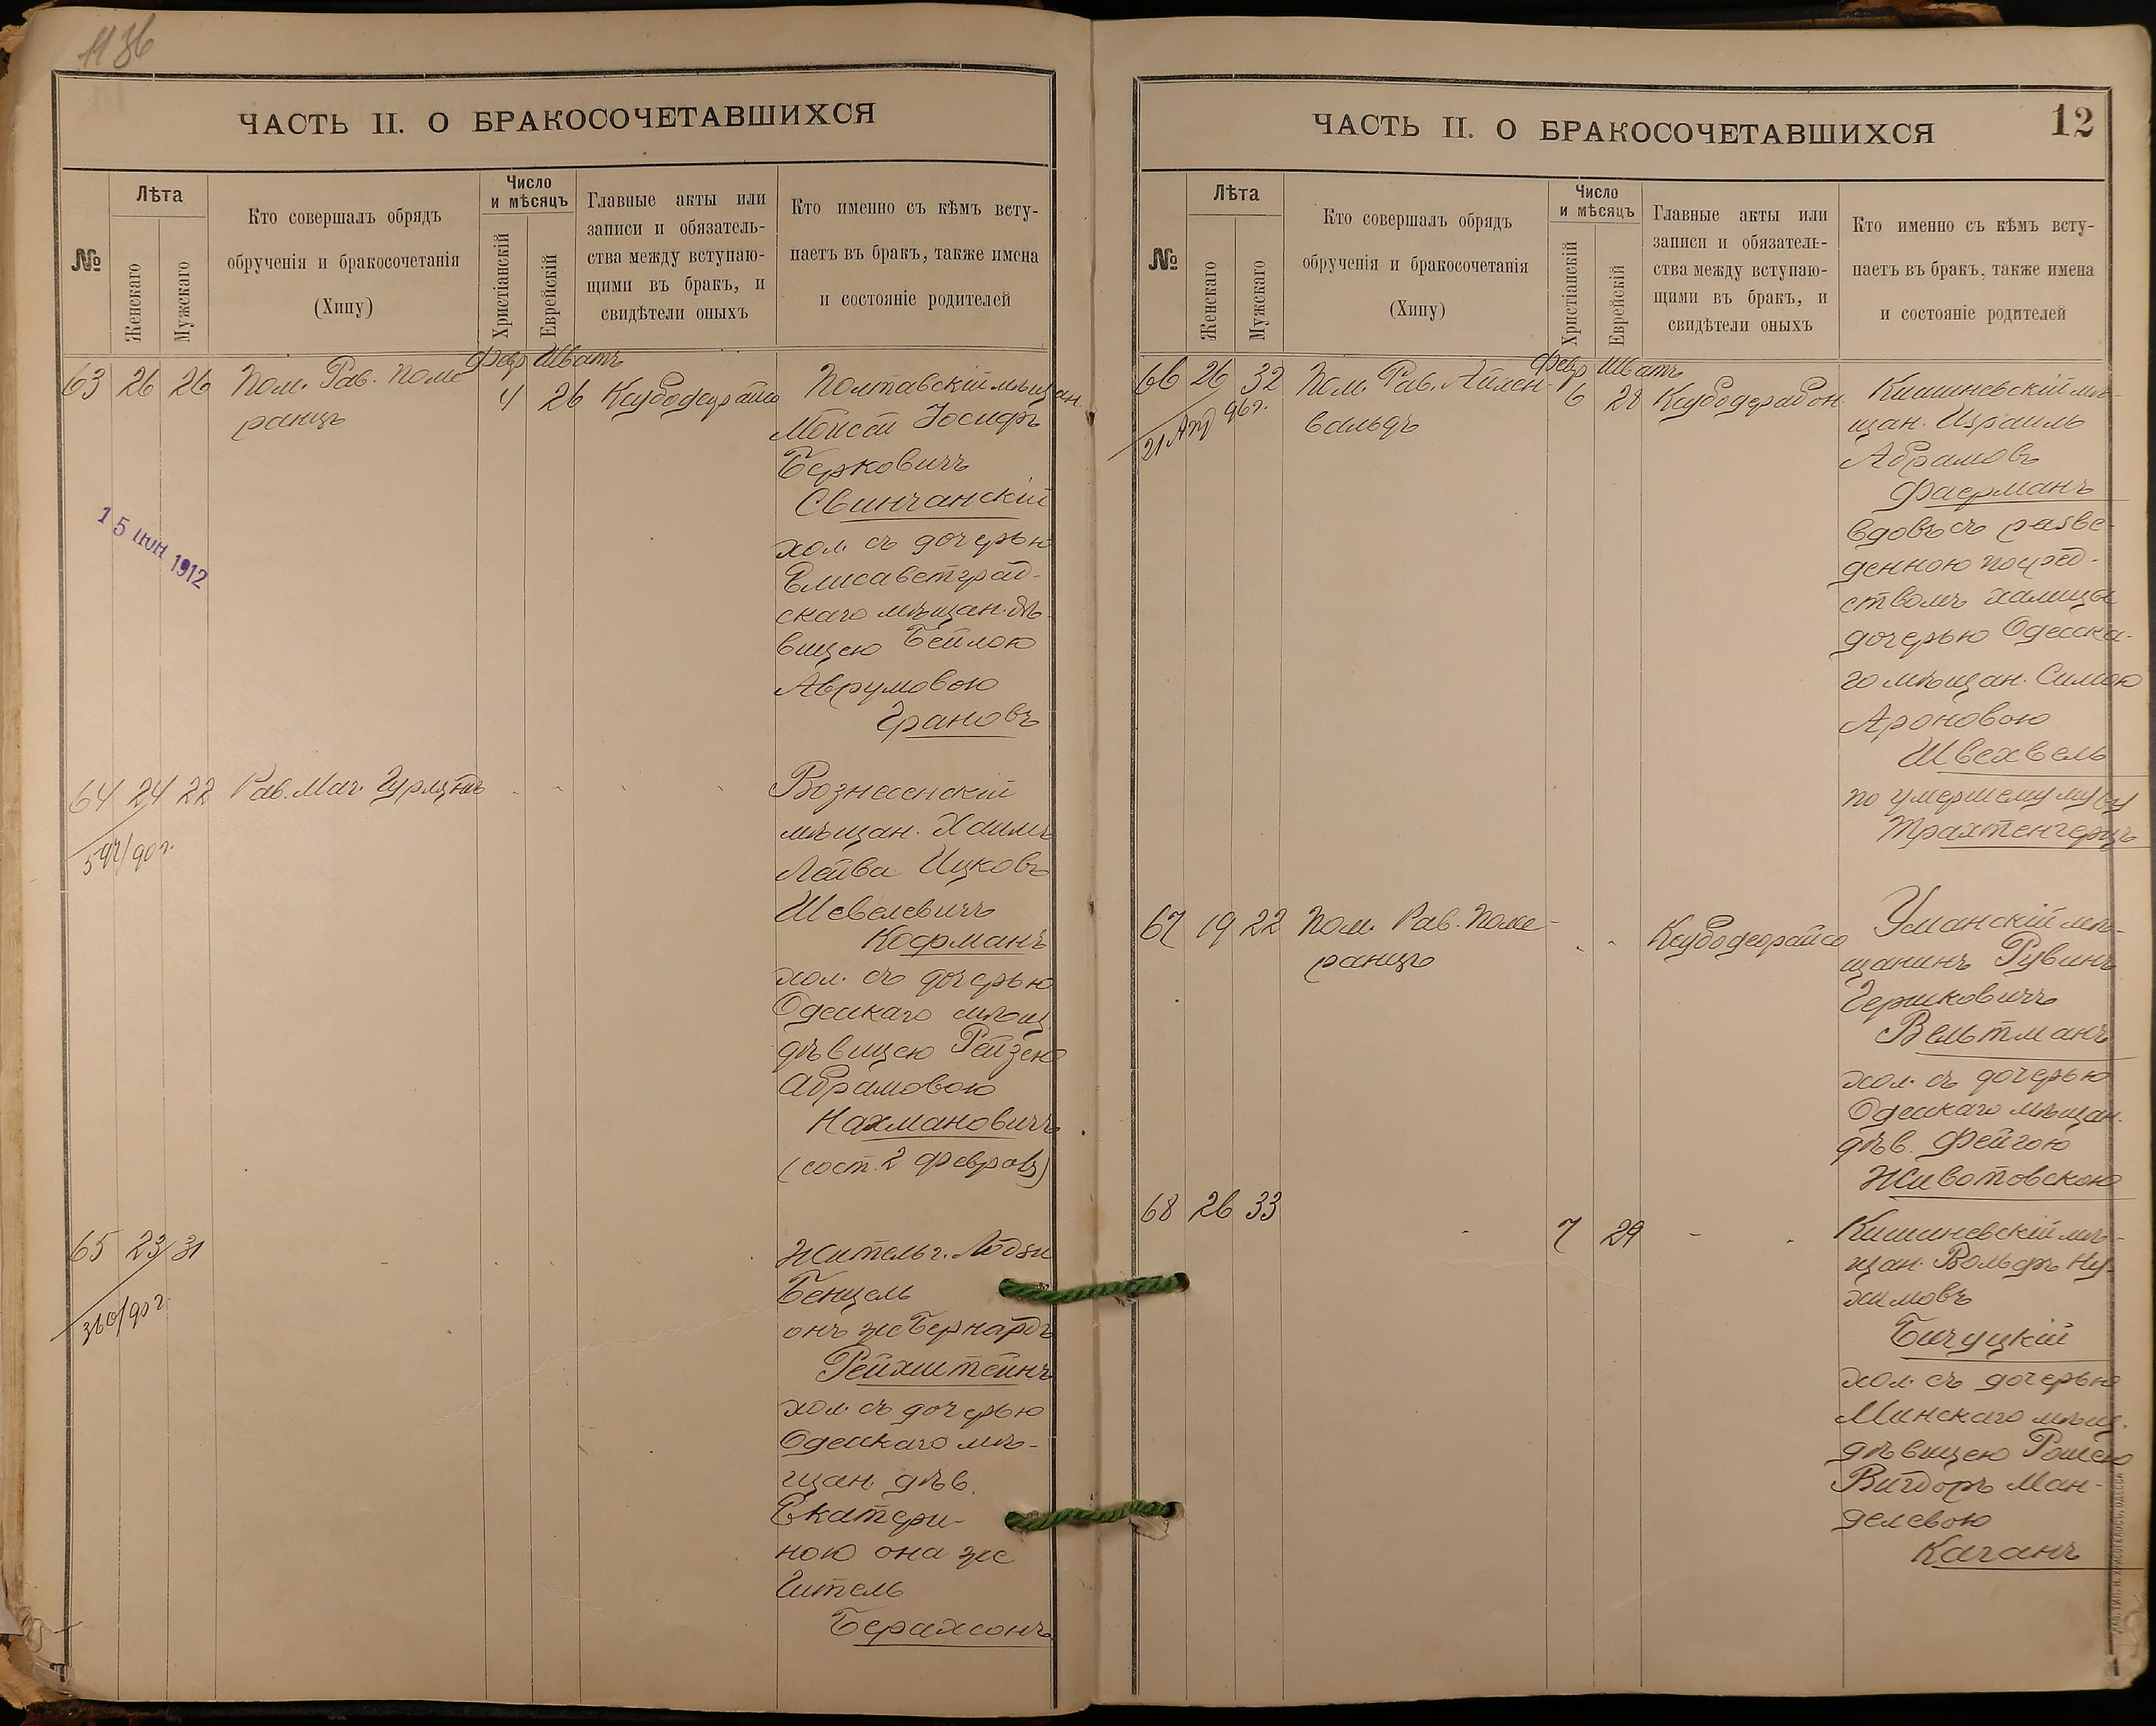 1136
ЧАСТЬ II. О БРАКОСОЧЕТАВШИХСЯ
№
Лѣта
Женскаго
Мужскаго
Кто совершалъ обрядъ
обрученія и бракосочетанія
(Хипу)
Число
и мѣсяцъ
Христіанскій
Еврейскій
Главные акты или
записи и обязатель-
ства между вступаю-
щими въ бракъ, и
свидѣтели оныхъ
Кто именно съ кѣмъ всту-
паетъ въ бракъ, также имена
и состояніе родителей
Февр Шватъ
63 26 26 Пом. Рав. Поме
ранцъ
4 26
Полтавскій мѣщан.
Мойсей Іосифъ
Берковичъ
Свинчанскій
хол. съ дочерью
Елисаветград-
скаго мѣщан. дѣ-
вицею Бейлою
Аврумовою
Грановъ
15 ІЮН 1912
64 24 22 Рав. Маг. Гурляндъ
597/90 г.
Вознесенскій
мѣщан. Хаимъ
Лейва Ицковъ
Шевелевичъ
Кофманъ
хол. съ дочерью
Одескаго мѣщ
дѣвицею Рейзею
Абрамовою
Нахмановичъ
(сост. 2 февраля)
65 23 31
360/90 г.
Житель г. Лодзи
Бенцель
онъ же Бернардъ
Рейхштейнъ
хол. съ дочерью
Одескаго мѣ-
щан. дѣв.
Екатери-
ною она же
Гитель
Берахсонъ
ЧАСТЬ II. О БРАКОСОЧЕТАВШИХСЯ
12
№
Лѣта
Женскаго
Мужскаго
Кто совершалъ обрядъ
обрученія и бракосочетанія
(Хипу)
Число
и мѣсяцъ
Христіанскій
Еврейскій
Главные акты или
записи и обязатель-
ства между вступаю-
щими въ бракъ, и
свидѣтели оныхъ
Кто именно съ кѣмъ всту-
паетъ въ бракъ, также имена
и состояніе родителей
Февр Шватъ
66 26 32 Пом. Рав. Айхен-
вальдъ
21 Апр 96 г.
6 28
Кишиневскій мѣ-
щан. Израиль
Абрамовъ
Фаерманъ
вдовъ съ разве-
денною посред-
ствомъ халицы
дочерью Одесска-
го мѣщан. Симою
Ароновою
Швехвель
по умершему мужу
Трахтенгерцъ
67 19 22 Пом. Рав. Поме-
ранцъ
Уманскій мѣ-
щанинъ Рувинъ
Гершковичъ
Вельтманъ
хол. съ дочерью
Одескаго мѣщан.
дѣв. Фейгою
Животовскою
68 26 33
7 29
Кишиневскій мѣ-
щан. Вольфъ Ну-
химовъ
Бичуцкій
хол. съ дочерью
Минскаго мѣщ.
дѣвицею Рошею
Вигдоръ Ман-
делевою
Каганъ